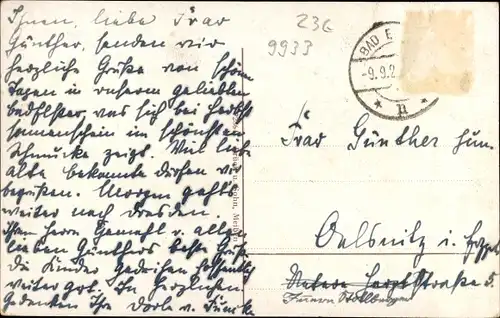 Ihnen, liebe Frau
Günther, senden wir
herzliche Grüße von schönen
Tagen in unserm geliebten
Bad Elster, was sich bei Herbst
sonnenschein im schönsten
Schmucke zeigt. Viel liebe
alte bekannte dürfen wir
begrüßen. Morgen gehts
weiter nach Dresden.
Ihrem Herrn Gemahl u. allen
lieben Günthers beste Grüße
die Kinder gedeihen hoffentlich
weiter gut. In herzlichem
Gedenken Ihre Dorle v.
236
9933
BAD E
-9.9.2
* n *
Frau Günther
Oelsnitz i. Erzgeb.
Untere Hauptstraße